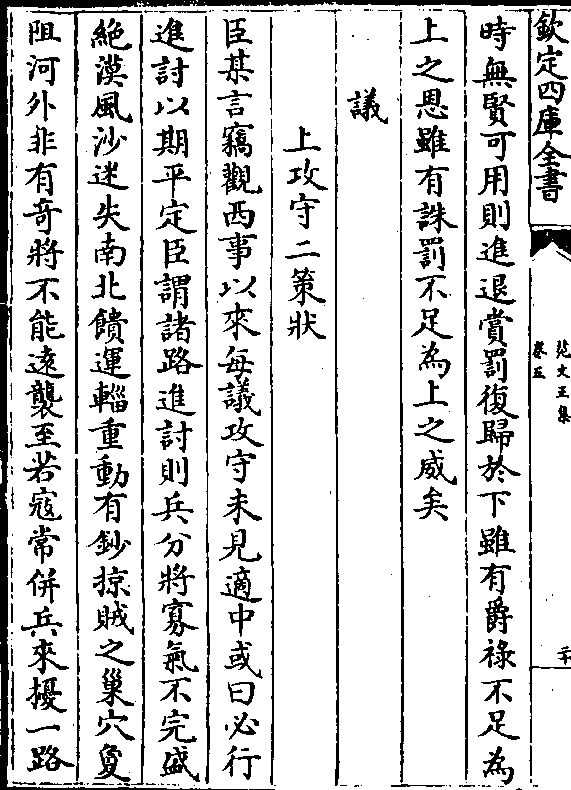 欽定四庫全書
范文正集
卷五
二十
時無賢可用則進退賞罰復歸於下雖有爵祿不足為
上之恩雖有誅罰不足為上之威矣
議
上攻守二策狀
臣某言竊觀西事以來每議攻守未見適中或曰必行
進討以期平定臣謂諸路進討則兵分將寡氣不完盛
絶漠風沙迷失南北饋運輜重動有鈔掠賊之巢穴敻
阻河外非有奇將不能遠襲至若寇常併兵來擾一路